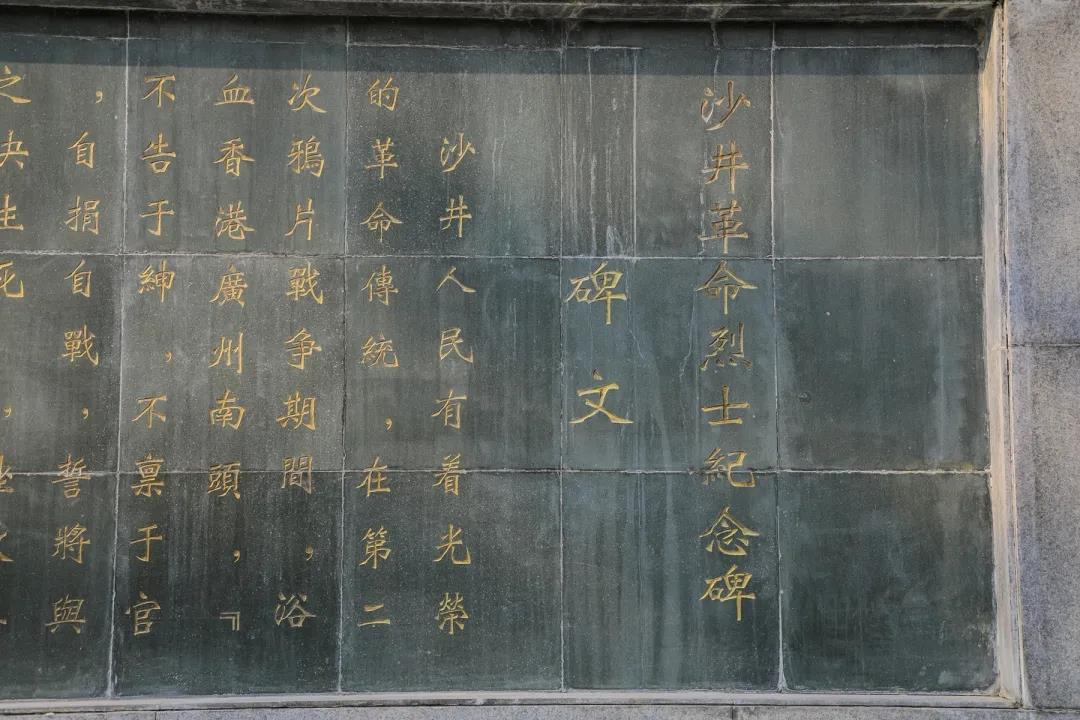 沙井革命烈士紀念碑
碑文
沙井人民有着光榮
的革命傳統，在第二
次鴉片戰争期間，浴
血香港廣州南頭，『
不告于紳，不禀于官
，自捐自戰，誓將與
之决生死，